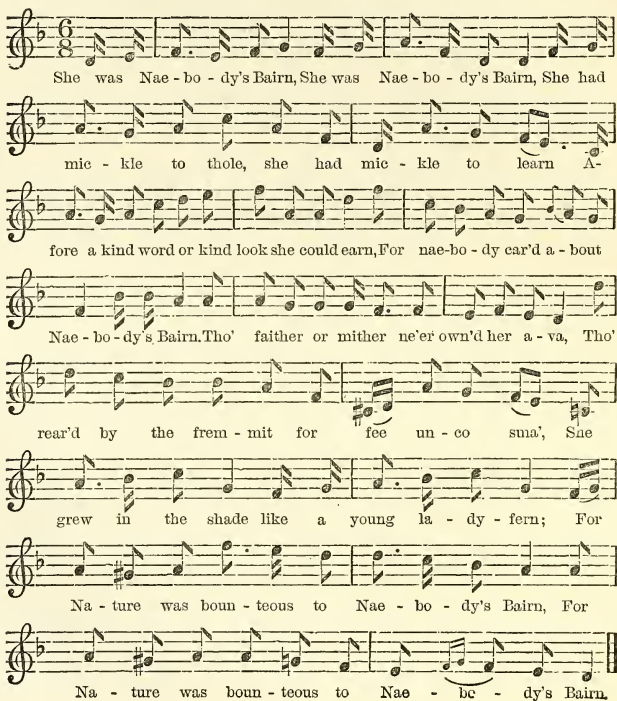 6
8
She was Nae - bo - dy's Bairn, She was Nae - bo - dy's Bairn, She had
mic - kle to thole, she had mic - kle to learn A-
fore a kind word or kind look she could earn, For nae-bo - dy car'd a - bout
Nae - bo - dy's Bairn. Tho' faither or mither ne'er own'd her a - va, Tho'
rear'd by the frem - mit for fee un - co sma', She
grew in the shade like a young la - dy - fern; For
Na - ture was boun - teous to Nae - bo - dy's Bairn, For
Na - ture was boun - teous to Nae - bo - dy's Bairn.